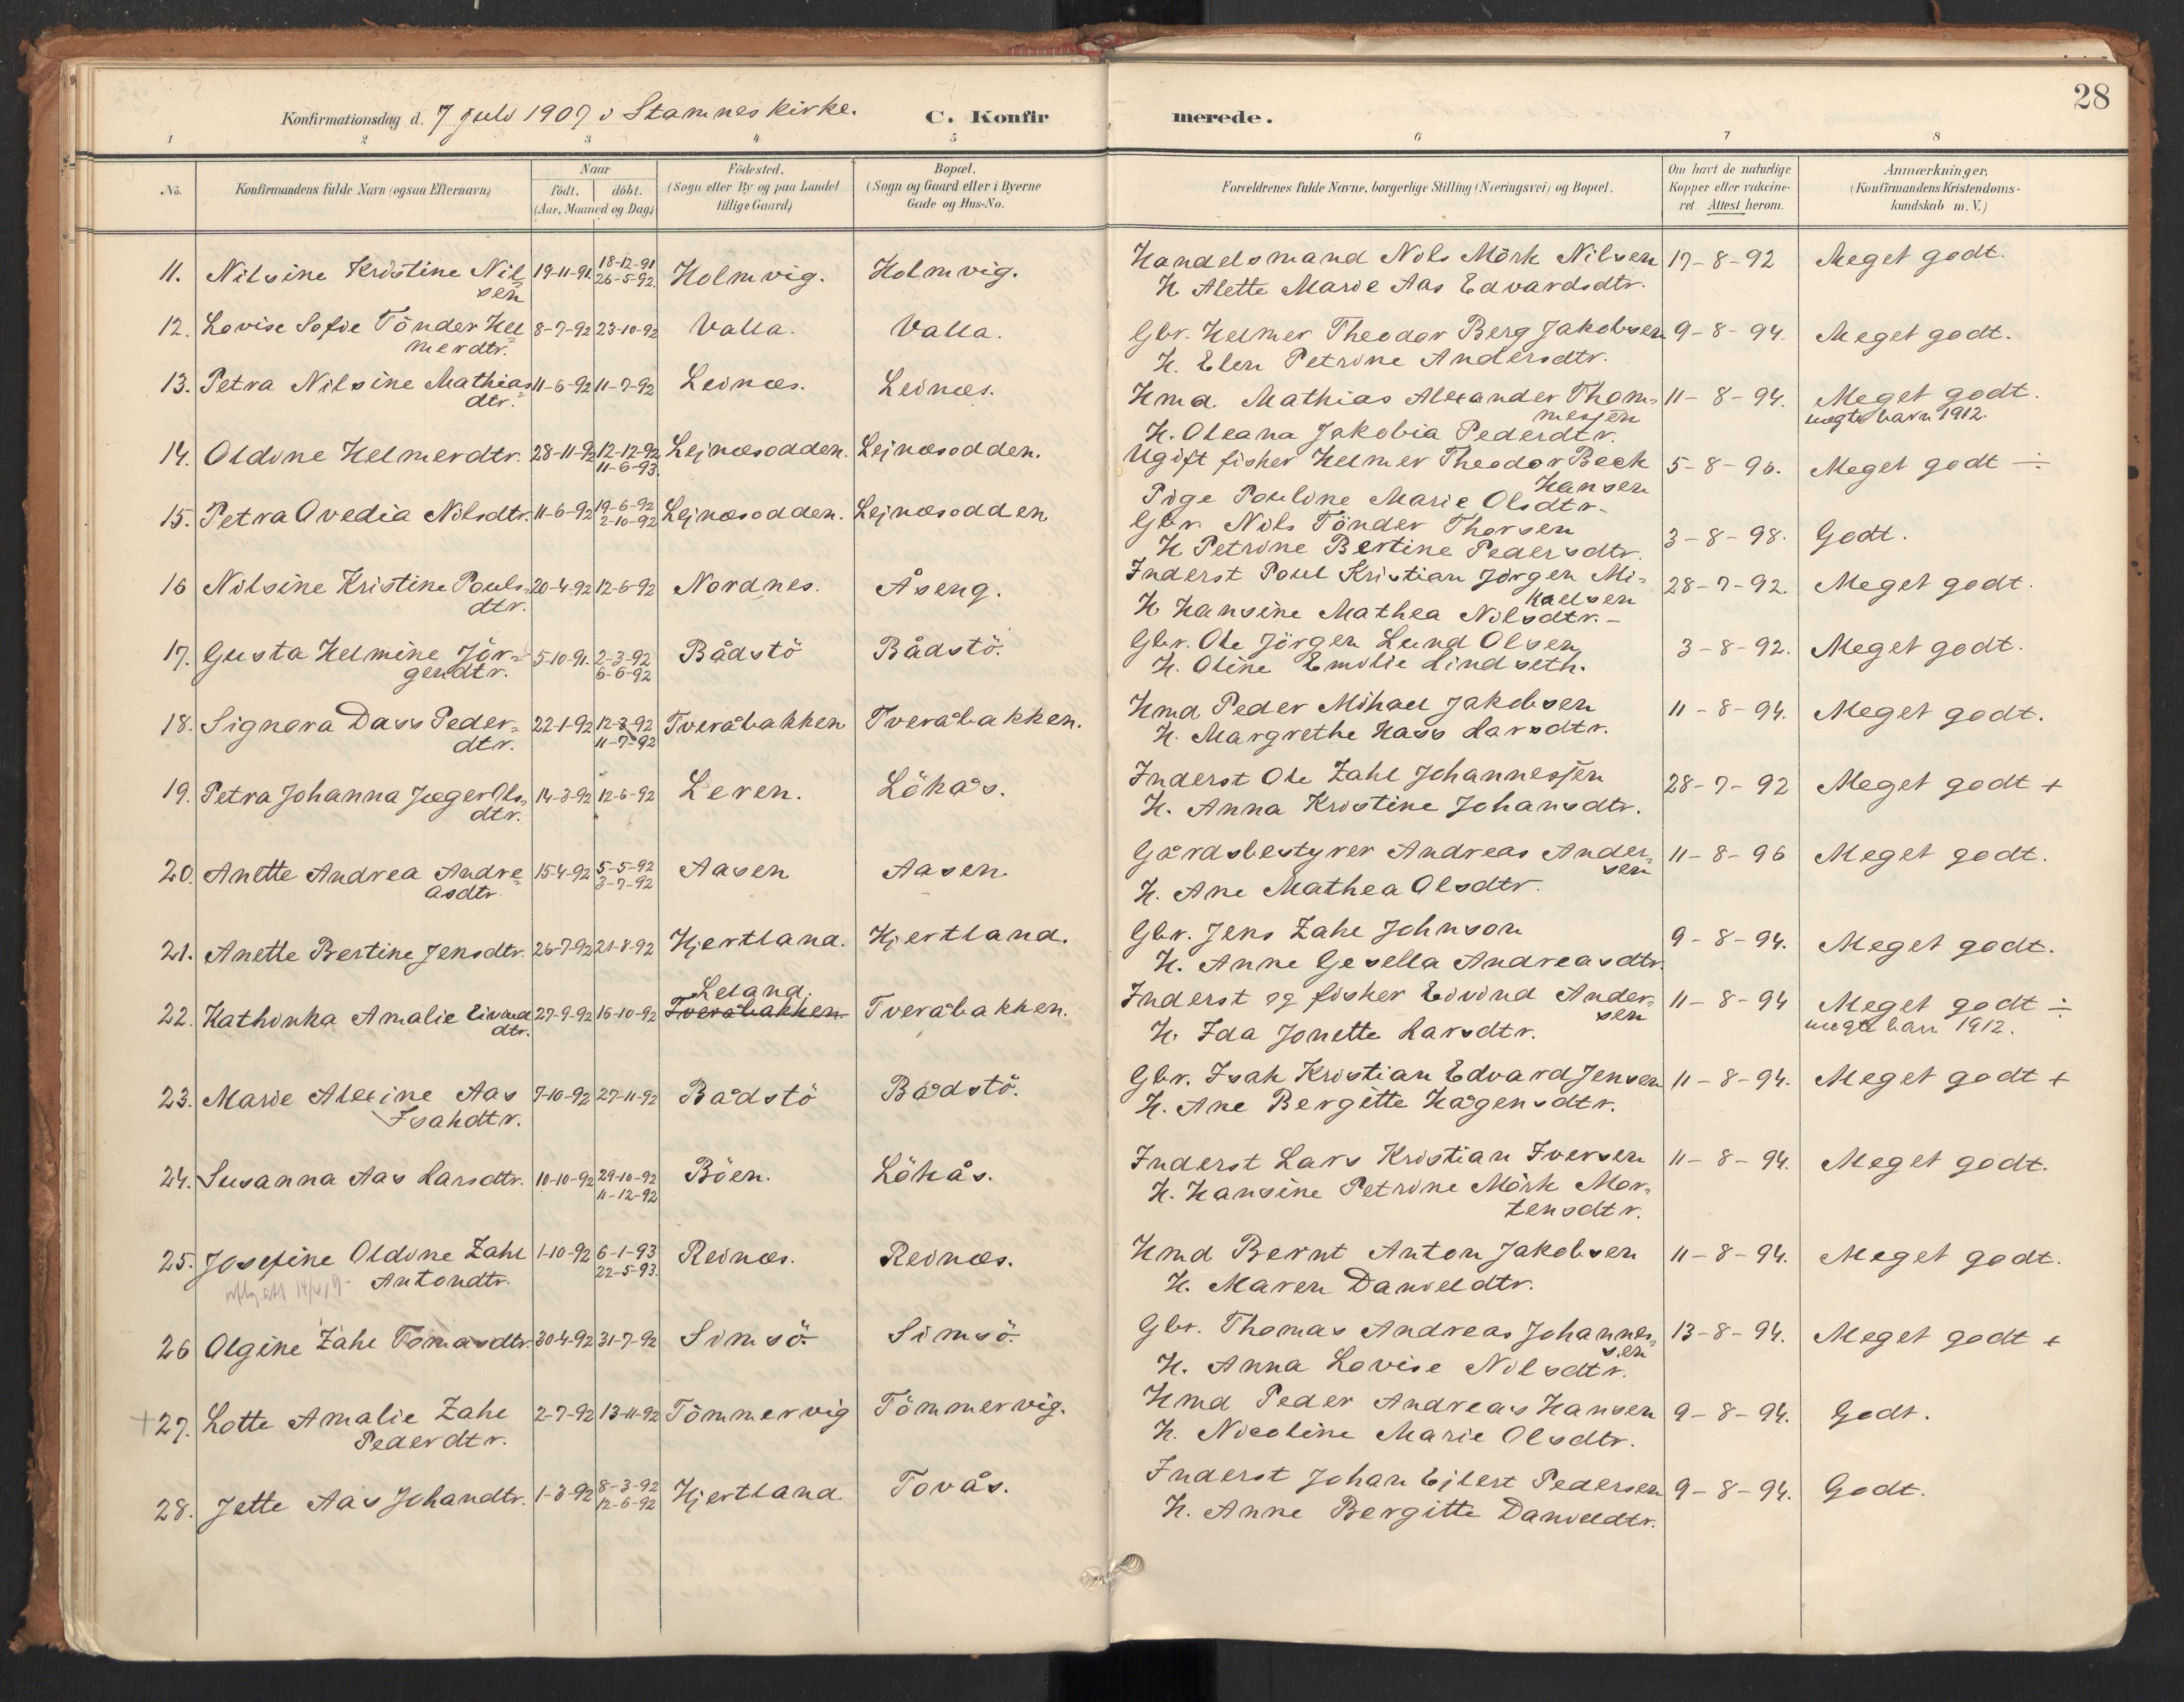 28
Konfirmationsdag d. 7 juli 1907 i Stamnes kirke. C. Konfirmerede.
1 2 3 4 5 6 7 8
No. Konfirmandens fulde Navn (ogsaa Efternavn) Naar födt. döbt. (Aar, Maaned og Dag) Födested. (Sogn eller By og paa Landet tillige Gaard) Bopæl. (Sogn og Gaard eller i Byerne Gade og Hus-No. Forældrenes fulde Navne, borgerlige Stilling (Næringsvei) og Bopæl. Om havt de naturlige Kopper eller vakcineret. Attest herom. Anmærkninger, (Konfirmandens Kristendomskundskab m.V.)
11. Nilsine Kristine Nilsen 19-11-91. 18-12-91 26-5-92. Holmvig. Holmvig. Handelsmand Nils Mörk Nilsen 17-8-92 Meget godt.
H Alette Marie Aas Edvardsdtr.
12. Lovise Sofie Tönder Helmerdtr. 8-7-92 23-10-92 Valla. Valla. Gbr. Helmer Theodor Berg Jakobsen 9-8-94. Meget godt.
H. Elen Petrine Andersdtr.
13. Petra Nilsine Mathiasdtr. 11-6-92 11-7-92 Leinæs. Leinæs. Hmd. Mathias Alexander Thommesjen 11-8-94. Meget godt.
H. Oleana Jakobia Pedersdtr. uegte barn 1912.
14. Oldine Helmerdtr. 28-11-92 12-12-92 11-6-93. Lejnæsodden. Lejnæsodden. Ugift fisher Helmer Theodor Beck Hansen 5-8-96. Meget godt ÷
Pige Pouline Marie Olsdtr.
15. Petra Ovedia Nilsdtr. 11-6-92 19-6-92 2-10-92 Lejnæsodden. Lejnæsodden Gbr. Nils Tönder Thorsen 3-8-98. Godt.
H Petrine Bertine Pedersdtr.
16 Nilsine Kristine Poulsdtr. 20-4-92 12-6-92 Nordnes. Åseng. Inderst Poul Kristian Jörgen Mikaelsen 28-7-92. Meget godt.
H Hansine Mathea Nilsdtr.-
17. Gusta Helmine Jörgendtr. 5-10-91. 2-3-92 6-6-92 Bådstö Bådstö. Gbr. Ole Jörgen Lund Olsen 3-8-92. Meget godt.
H. Oline Emilie Lindseth.
18. Signora Dass Pederdtr. 22-1-92 12-3-92 11-7-92 Tveråbakken Tveråbakken. Hmd Peder Mihael Jakobsen 11-8-94. Meget godt.
H. Margrethe Hass Larsdtr.
19. Petra Johanna Jæger Olsdtr. 14-3-92 12-6-92 Leren. Lökås. Inderst Ole Zahl Johannesjen 28-7-92 Meget godt +
H. Anna Kristine Johansdtr.
20. Anette Andrea Andreasdtr. 15-4-92 5-5-92 3-7-92 Aasen Aasen. Gårdsbestyrer Andreas Andersen 11-8-96 Meget godt.
H. Ane Mathea Olsdtr.
21. Anette Bertine Jensdtr. 26-7-92 21-8-92 Hjertland. Hjertland. Gbr. Jens Zahl Johnson 9-8-94. Meget godt.
H. Anne Gesella Andreasdtr.
22. Kathinka Amalie Eivinddtr. 27-9-92 16-10-92 Leland. Tveråbakken. Tveråbakken. Inderst og fisker Eivind Andersen 11-8-94 Meget godt ÷
H. Ida Jonette Larsdtr. uegte barn 1912.
23. Marie Alexine Aas Isakdtr. 7-10-92 27-11-92 Bådstö Bådstö. Gbr. Isak Kristian Edvard Jensen 11-8-94. Meget godt +
H. Ane Bergitte Hågensdtr.
24. Susanna Aas Larsdtr. 10-10-92 29-10-92 11-12-92 Böen. Lökås. Inderst Lars Kristian Iversen 11-8-94. Meget godt.
H. Hansine Petrine Mörk Mortensdtr.
25. Josefine Oldine Zahl Antondtr. 1-10-92 6-1-93 22-5-93. Reinæs. Reinæs. Hmd Bernt Anton Jakobsen 11-8-94. Meget godt.
H. Maren Danieldtr.
26 Olgine Zahl Tomasdtr. 30-4-92 31-7-92 Simsö. Simsö. Gbr. Thomas Andreas Johannessen 13-8-94. Meget godt +
H. Anna Lovise Nilsdtr.
+27. Lotte Amalie Zahl Pederdtr. 2-7-92 13-11-92 Tömmervig Tömmervig. Hmd Peder Andreas Hansen 9-8-94. Godt.
H. Nicoline Marie Olsdtr.
28. Jette Aas Johandtr. 1-3-92 8-3-92 12-6-92 Hjertland Tovås. Inderst Johan Ejlert Pedersen 9-8-94. Godt.
H. Anne Bergitte Danieldtr.